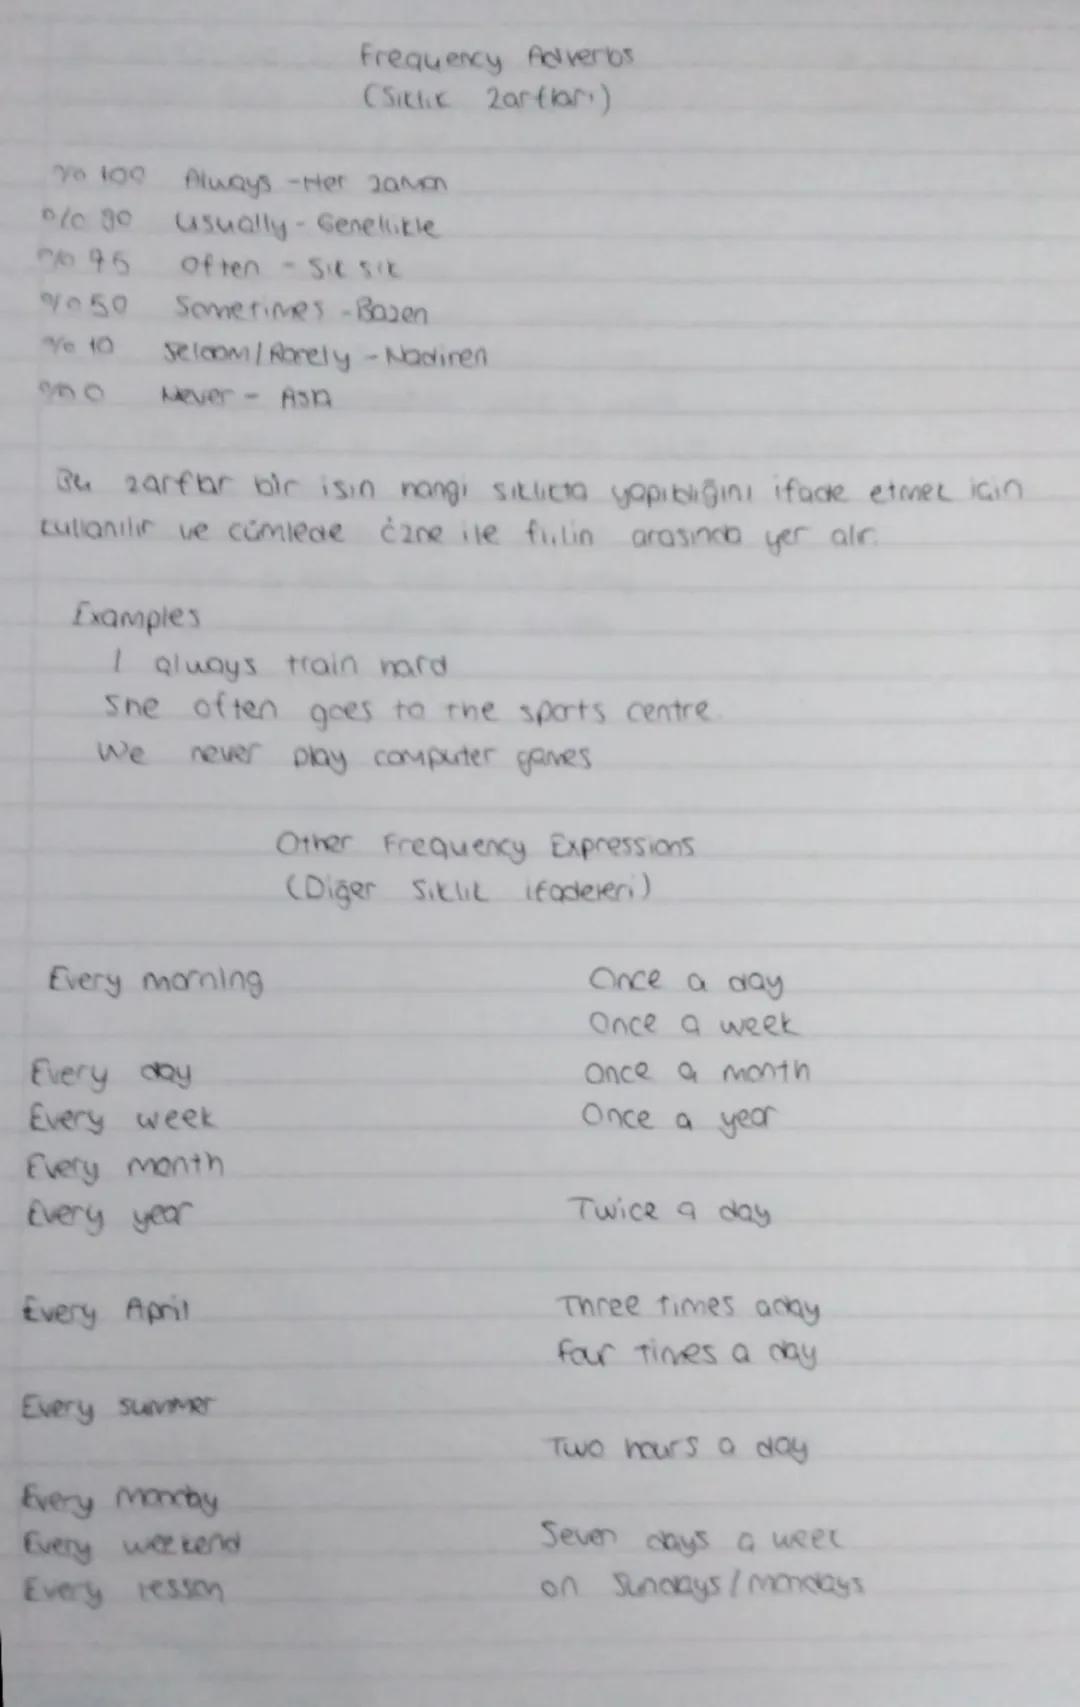 Frequency Adverbs
(Sıklık Zarfları)
% 100 Always - Her zaman
% 90 Usually - Genellikle
% 95 Often - Sık sık
% 50 Sometimes - Bazen
% 10 Seldom / Rarely - Nadiren
% 0 Never - Asla
Bu zarflar bir işin hangi sıklıkta yapıldığını ifade etmek için
kullanılır ve cümlede özne ile fiilin arasında yer alır.
Examples
I always train hard
She often goes to the sports centre.
We never play computer games
Other Frequency Expressions
(Diğer Sıklık ifadeleri)
Every morning
Every day
Every week
Every month
Every year
Every April
Every summer
Every monday
Every weekend
Every lesson
Once a day
Once a week
Once a month
Once a year
Twice a day
Three times a day
four times a day
Two hours a day
Seven days a week
on Sundays / mondays